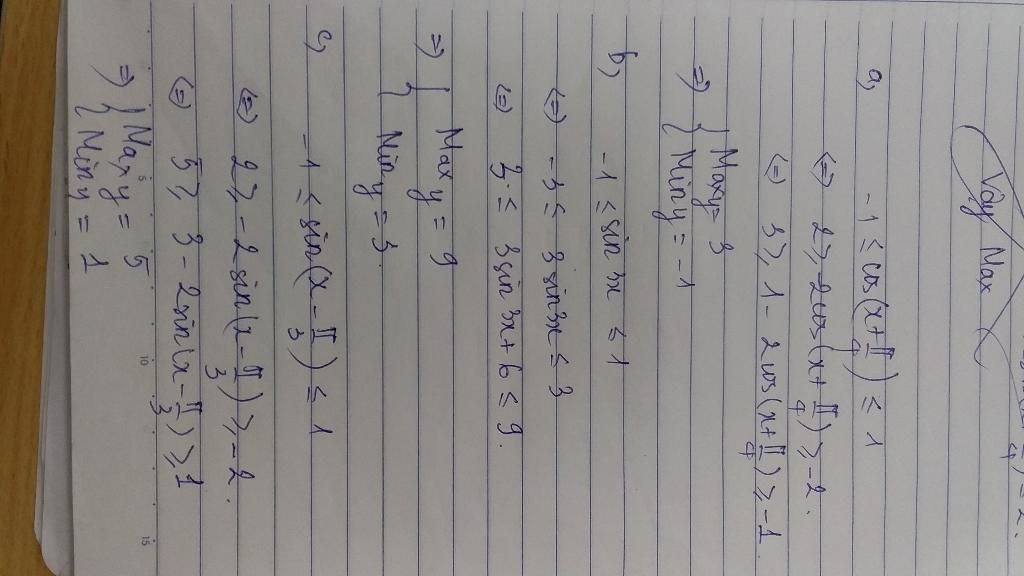 Vậy Max
a, -1 ≤ cos(x+π/4) ≤ 1
<=> 2 ≥ -2cos(x+π/4) ≥ -2.
<=> 3 ≥ 1 - 2cos(x+π/4) ≥ -1.
=> { Max y = 3
Min y = -1
b, -1 ≤ sin 3x ≤ 1
<=> -3 ≤ 3sin3x ≤ 3
<=> 3 ≤ 3sin3x + 6 ≤ 9.
=> { Max y = 9
Min y = 3.
c, -1 ≤ sin(x - π/3) ≤ 1
<=> 2 ≥ -2sin(x - π/3) ≥ -2.
<=> 5 ≥ 3 - 2sin(x - π/3) ≥ 1
=> { Max y = 5
Min y = 1
5 10 15